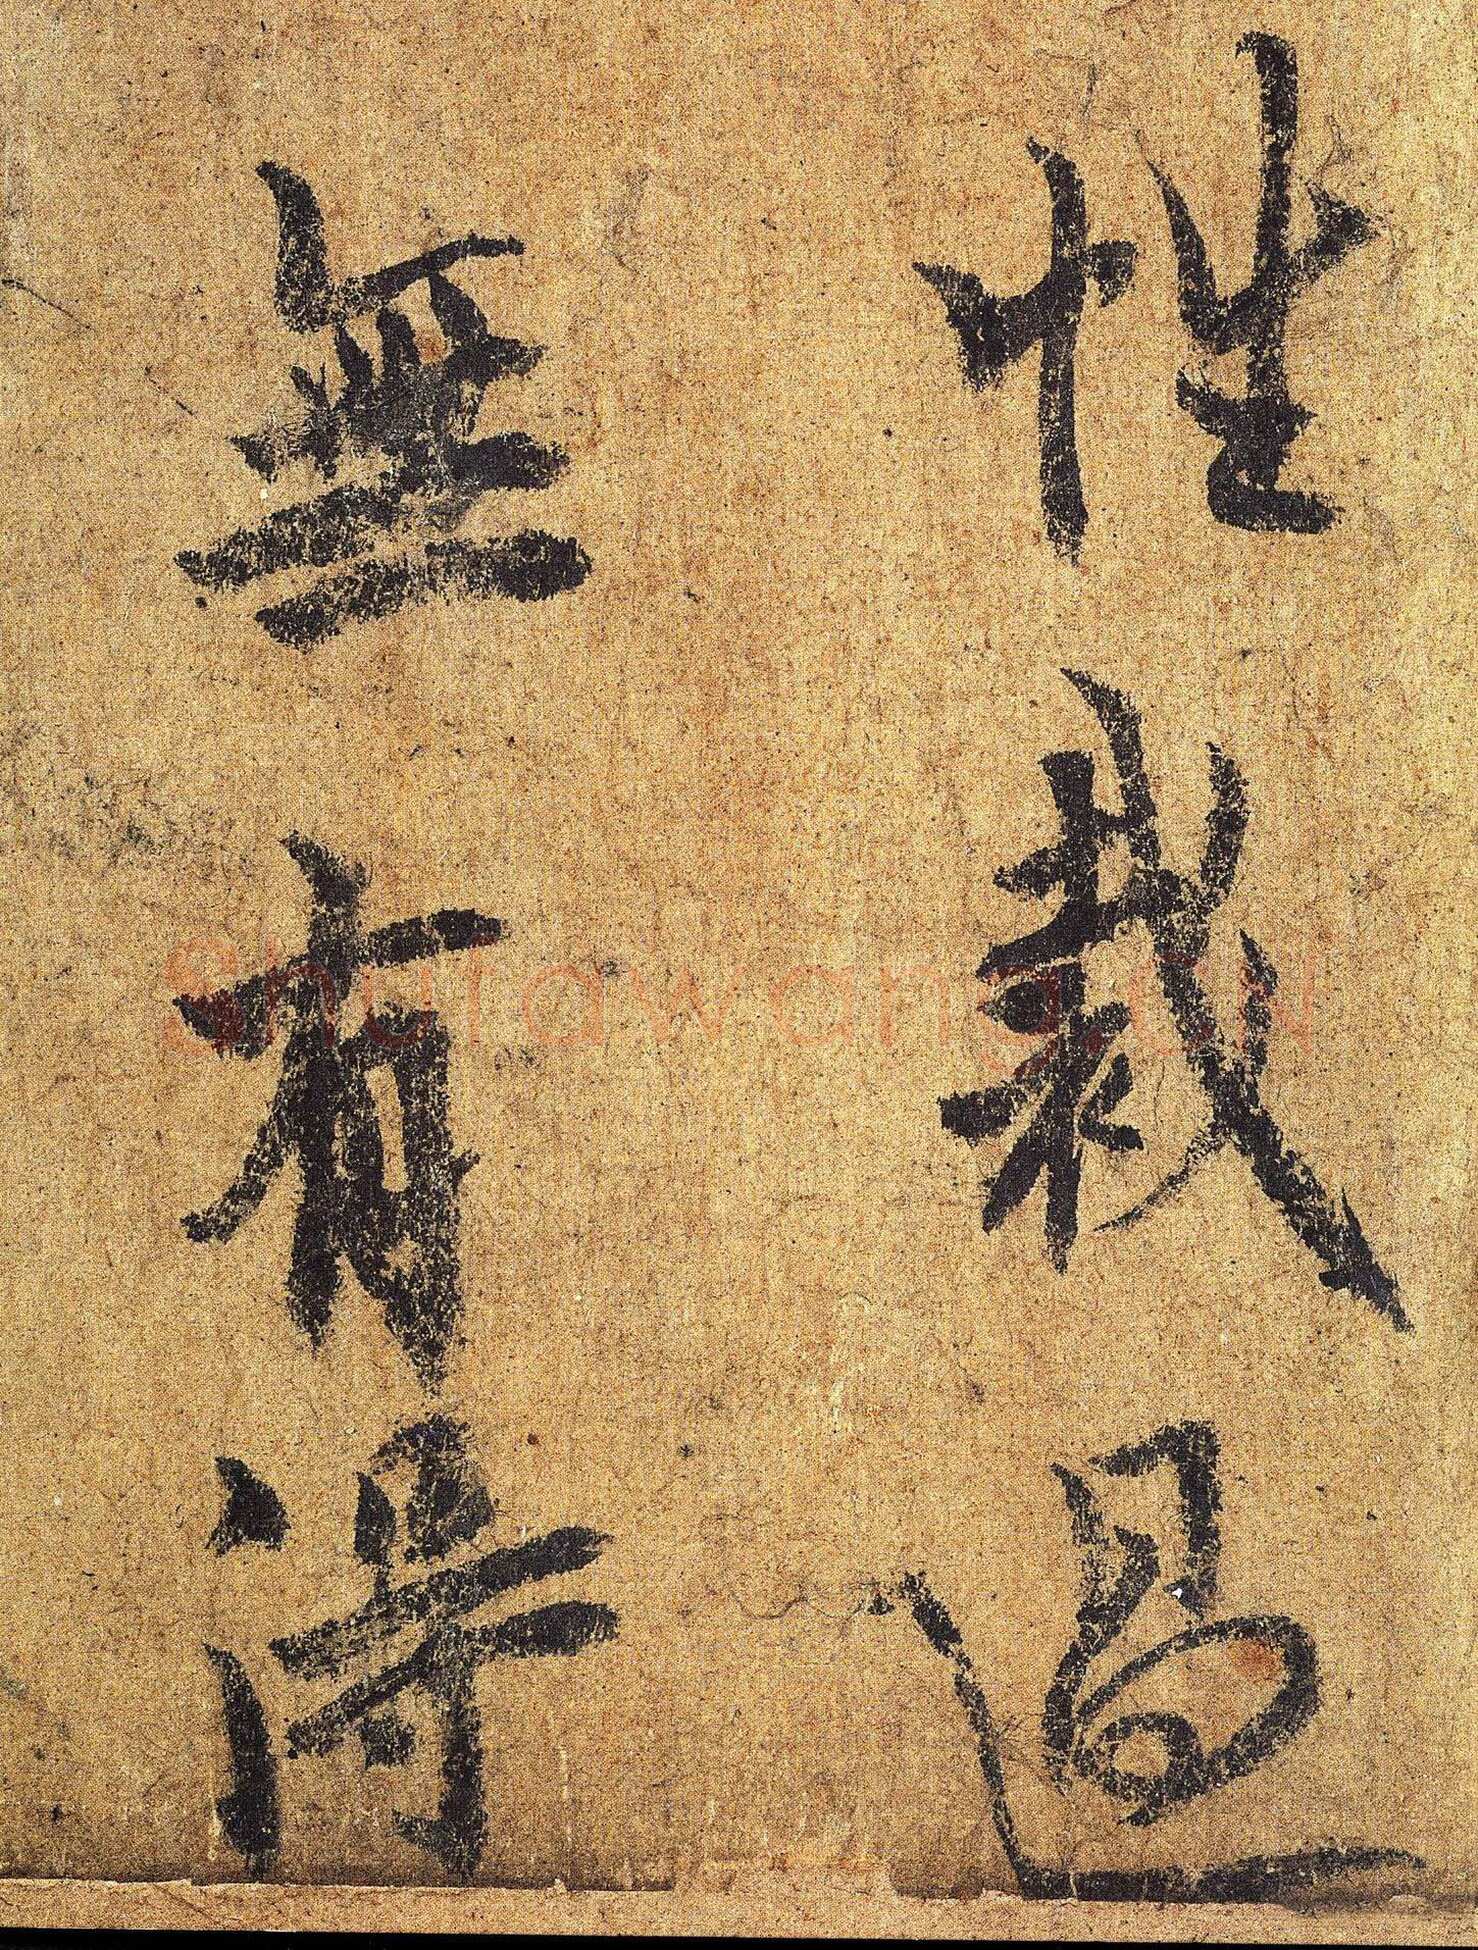 性裁過
無有滯
shufawang.cn